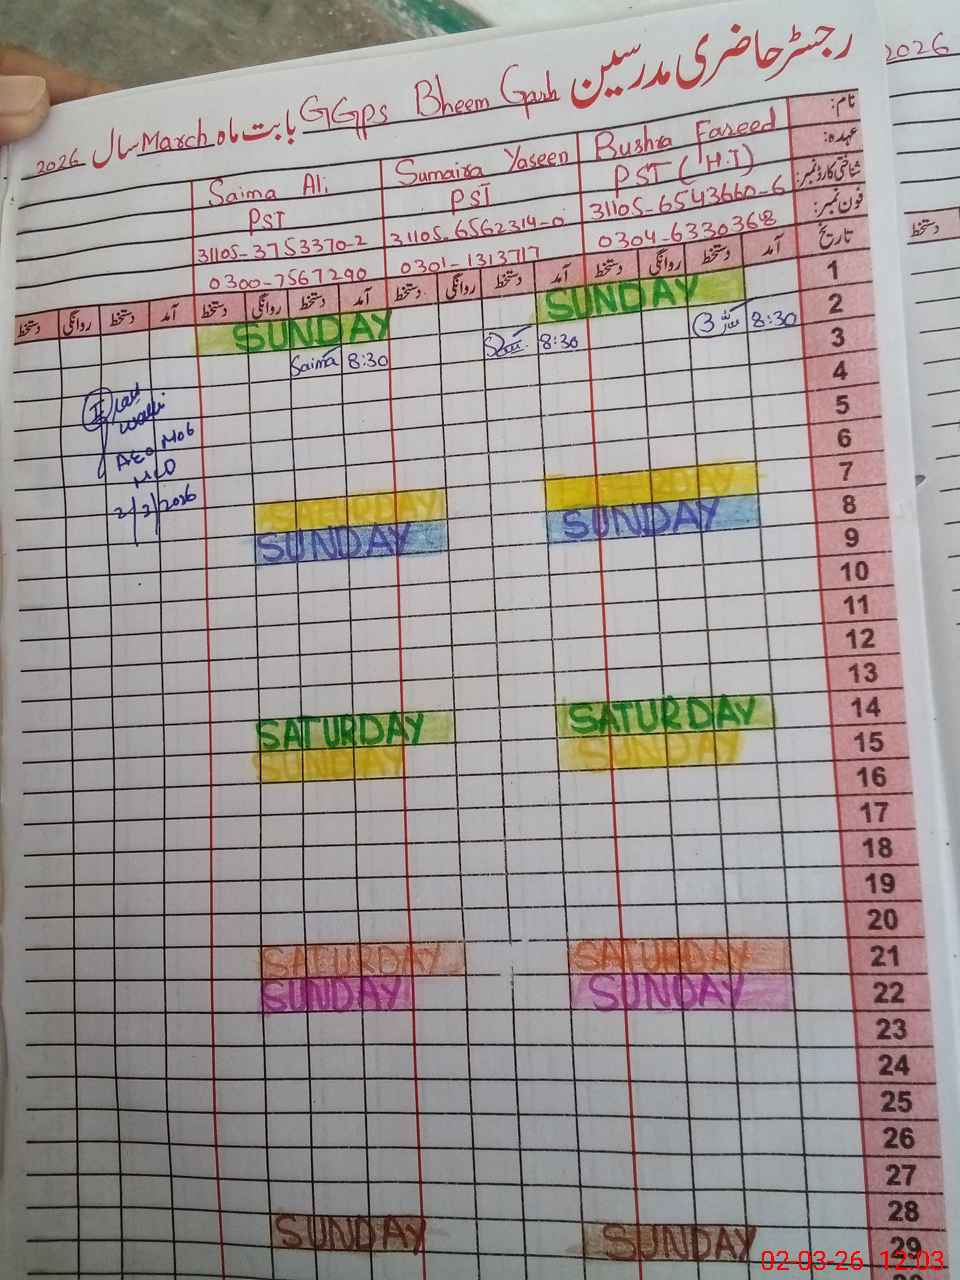 رجسٹر حاضری مدرسین GGPS Bheem Garh بابت ماہ March سال 2026
2026
نام: Bushra Fareed Sumaira Yaseen Saima Ali
عہدہ: PST (H.T) PST PST
شناختی کارڈ نمبر: 31105-6543660-6 31105-6562314-0 31105-3753370-2
فون نمبر: 0304-6330368 0301-1313717 0300-7567290
تاریخ آمد دستخط روانگی دستخط آمد دستخط روانگی دستخط آمد دستخط روانگی دستخط آمد دستخط روانگی دستخط
دستخط
1 SUNDAY SUNDAY
2 8:30 8:30 8:30 Saima
3
4
5
6
7 SATURDAY
8 SUNDAY SUNDAY
9
10
11
12
13
14 SATURDAY SATURDAY
15 SUNDAY SUNDAY
16
17
18
19
20
21 SATURDAY SATURDAY
22 SUNDAY SUNDAY
23
24
25
26
27
28
29 SUNDAY SUNDAY
AEO
2/3/2026
02-03-26 12:03